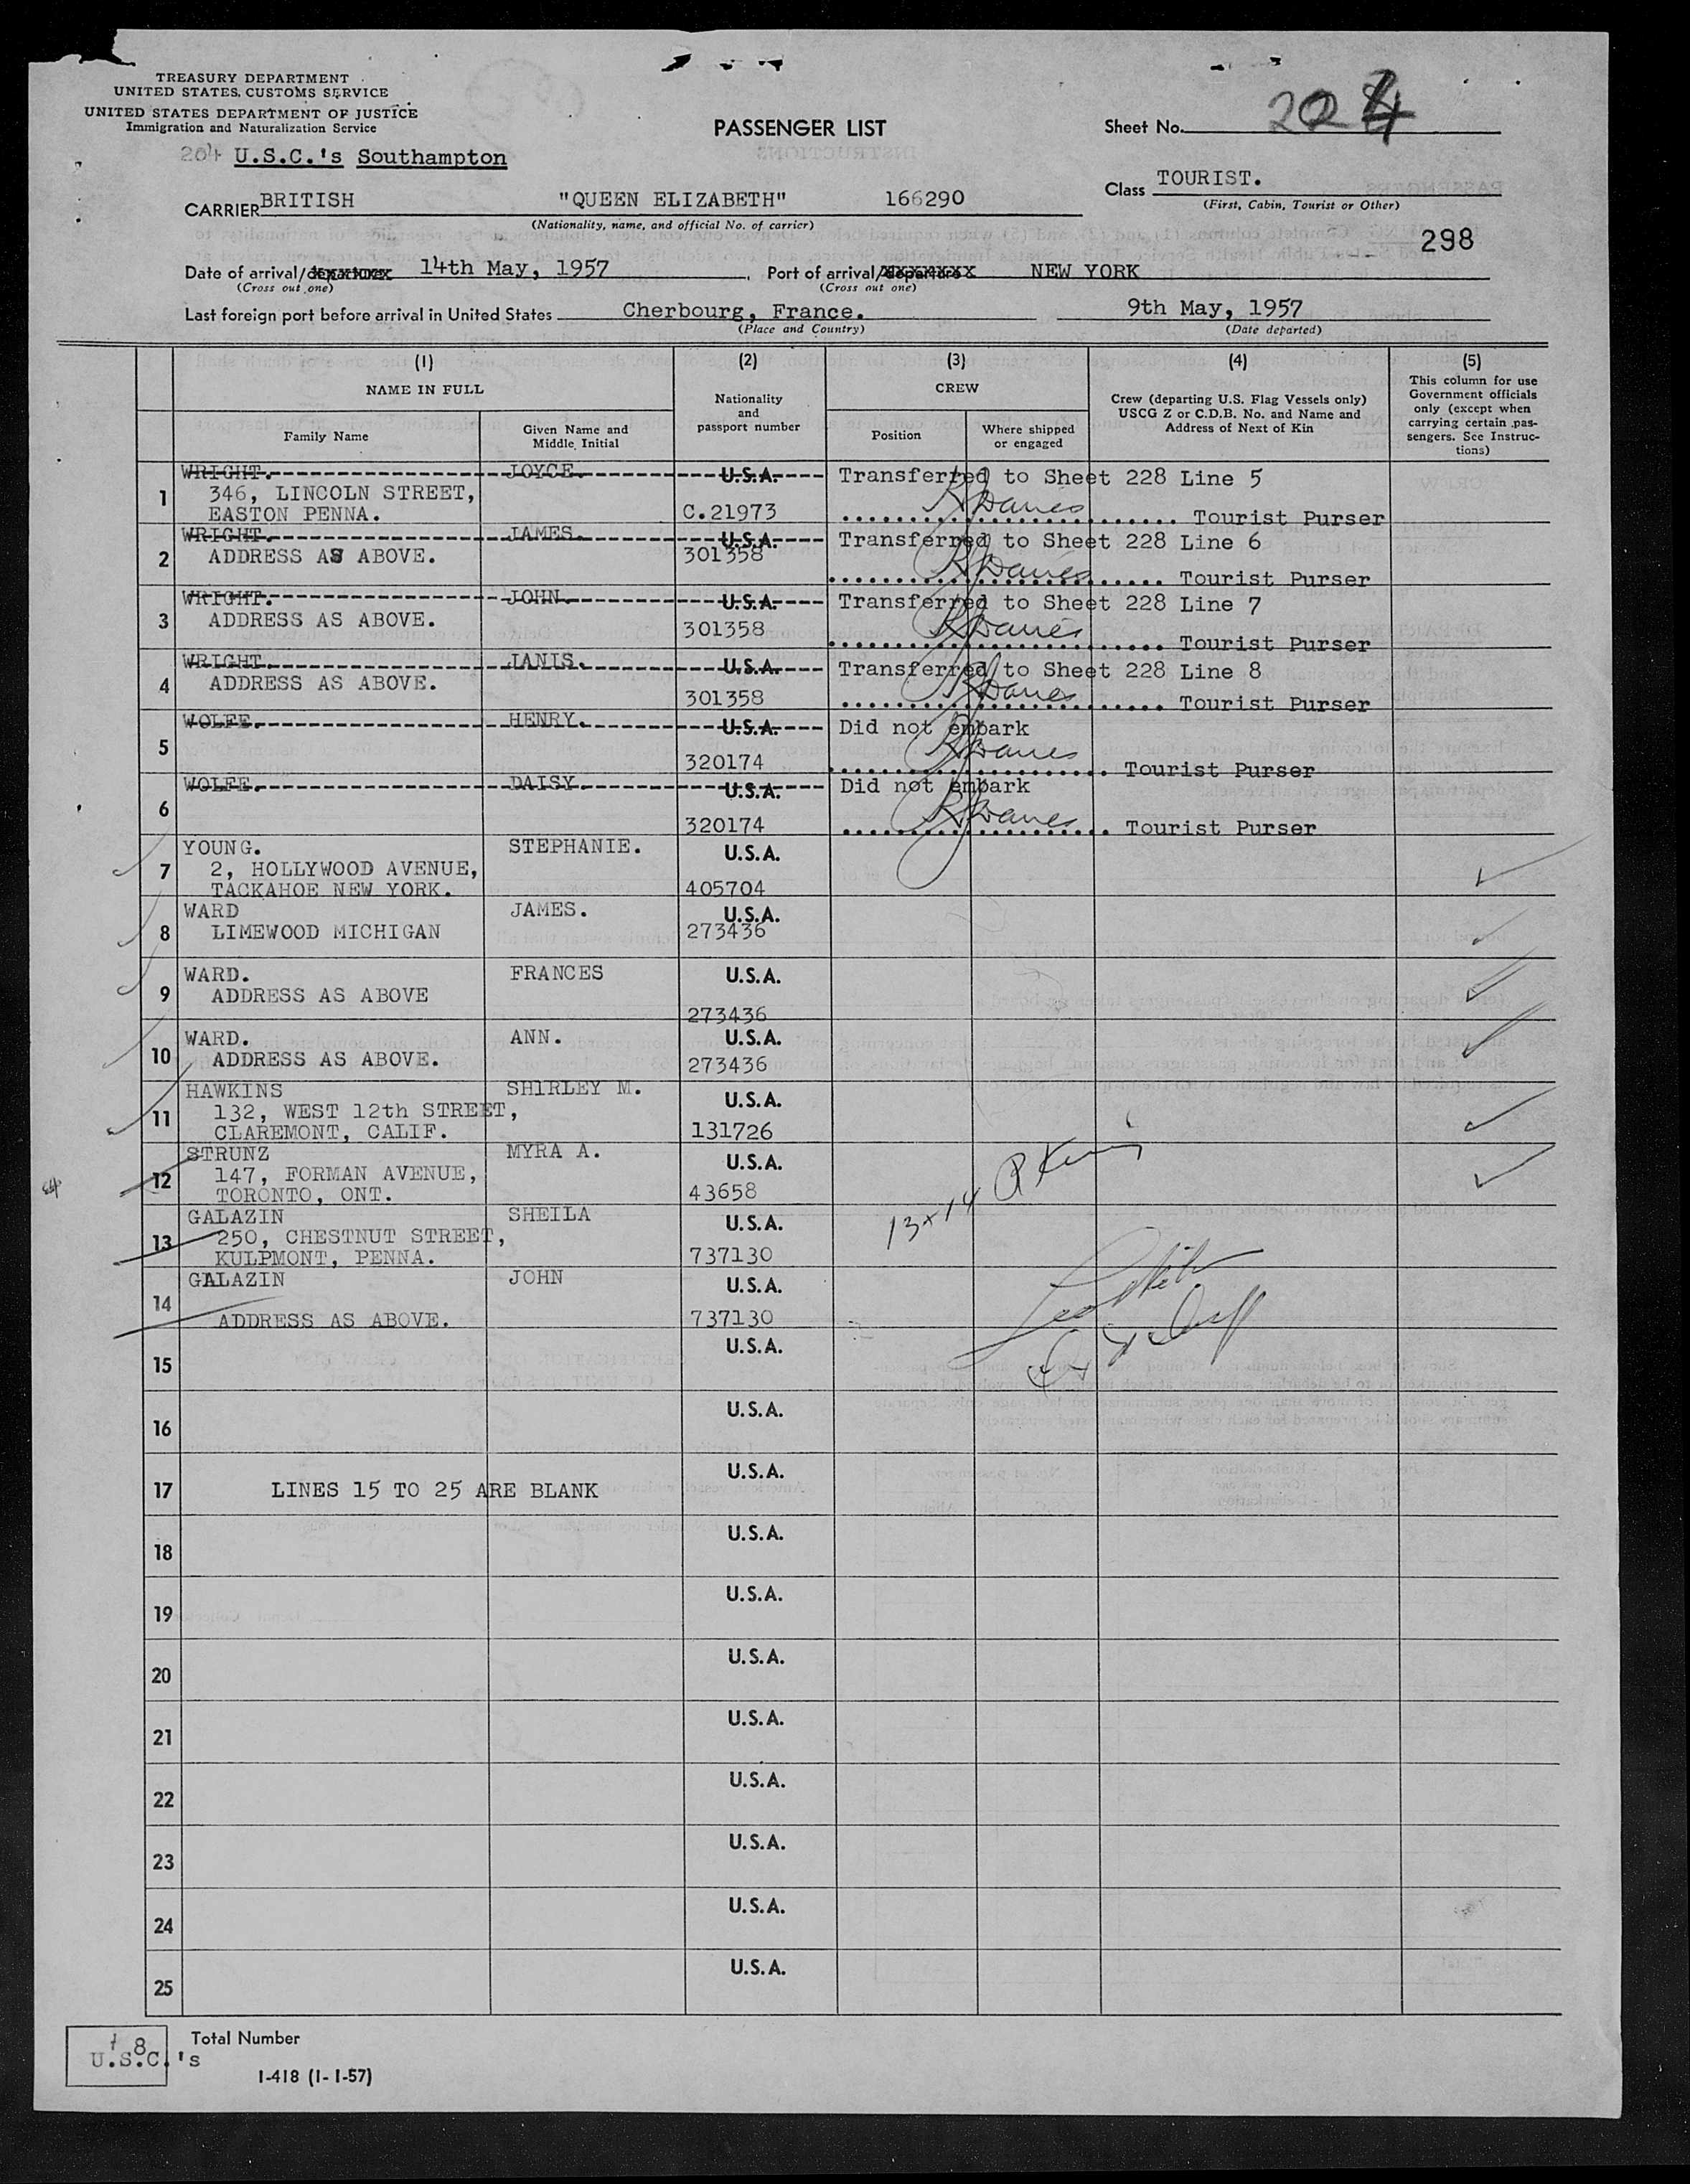 TREASURY DEPARTMENT
UNITED STATES CUSTOMS SERVICE
UNITED STATES DEPARTMENT OF JUSTICE
Immigration and Naturalization Service
204 U.S.C.'s Southampton
PASSENGER LIST
Sheet No. 204
CARRIER BRITISH "QUEEN ELIZABETH" 166290
(Nationality, name, and official No. of carrier)
Class TOURIST.
(First, Cabin, Tourist or Other)
298
Date of arrival/departure 14th May, 1957 Port of arrival/departure NEW YORK
(Cross out one) (Cross out one)
Last foreign port before arrival in United States Cherbourg, France. 9th May, 1957
(Place and Country) (Date departed)
(1) (2) (3) (4) (5)
NAME IN FULL
Family Name
Given Name and Middle Initial
Nationality and passport number
CREW
Position
Where shipped or engaged
Crew (departing U.S. Flag Vessels only)
USCG Z or C.D.B. No. and Name and
Address of Next of Kin
This column for use
Government officials
only (except when
carrying certain pas-
sengers. See Instruc-
tions)
1 WRIGHT. JOYCE. U.S.A. Transferred to Sheet 228 Line 5
346, LINCOLN STREET,
EASTON PENNA. C.21973 Tourist Purser
2 WRIGHT. JAMES. U.S.A. Transferred to Sheet 228 Line 6
ADDRESS AS ABOVE. 301358 Tourist Purser
3 WRIGHT. JOHN. U.S.A. Transferred to Sheet 228 Line 7
ADDRESS AS ABOVE. 301358 Tourist Purser
4 WRIGHT. JANIS. U.S.A. Transferred to Sheet 228 Line 8
ADDRESS AS ABOVE. 301358 Tourist Purser
5 WOLFE. HENRY. U.S.A. Did not embark
320174 Tourist Purser
6 WOLFE. DAISY. U.S.A. Did not embark
320174 Tourist Purser
7 YOUNG. STEPHANIE. U.S.A.
2, HOLLYWOOD AVENUE,
TACKAHOE NEW YORK. 405704
8 WARD JAMES. U.S.A.
LIMEWOOD MICHIGAN 273436
9 WARD. FRANCES U.S.A.
ADDRESS AS ABOVE 273436
10 WARD. ANN. U.S.A.
ADDRESS AS ABOVE. 273436
11 HAWKINS SHIRLEY M. U.S.A.
132, WEST 12th STREET,
CLAREMONT, CALIF. 131726
12 STRUNZ MYRA A. U.S.A.
147, FORMAN AVENUE,
TORONTO, ONT. 43658
13 GALAZIN SHEILA U.S.A. 13+14
250, CHESTNUT STREET,
KULPMONT, PENNA. 737130
14 GALAZIN JOHN U.S.A.
ADDRESS AS ABOVE. 737130
15 U.S.A.
16 U.S.A.
17 LINES 15 TO 25 ARE BLANK U.S.A.
18 U.S.A.
19 U.S.A.
20 U.S.A.
21 U.S.A.
22 U.S.A.
23 U.S.A.
24 U.S.A.
25 U.S.A.
8 U.S.C.'s Total Number
I-418 (1-1-57)